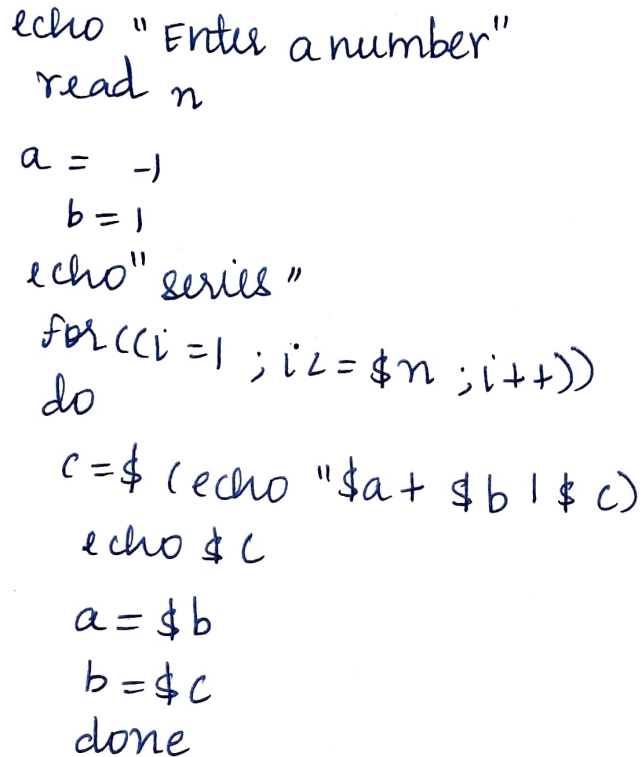 echo "Enter a number"
read n
a = -1
b = 1
echo "series"
for((i =1 ; i <= $n ; i++))
do
c = $ (echo "$a + $b | $ c)
echo $ c
a = $b
b = $c
done